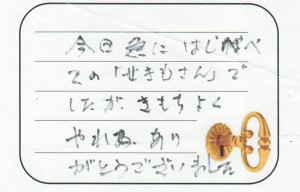 今回急にはじめべ
ての「せきもさん」で
したが、きもちよく
やれる。あり
がとうございました